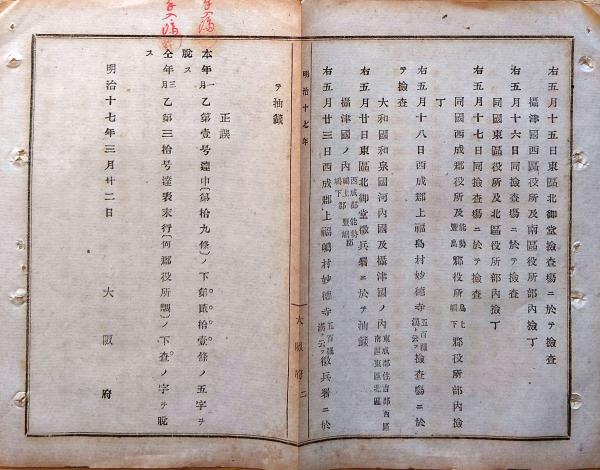 右五月十五日東區北御堂撿査塲ニ於テ撿査
攝津國西區役所及南區役所部內撿丁
右五月十六日同撿査塲ニ於テ撿査
同國東區役所及北區役所部內撿丁
右五月十七日同撿査塲ニ於テ撿査
同國西成郡役所及能勢豐島郡役所島上島下郡役所部內撿
丁
右五月十八日西成郡上福島村妙德寺五百羅漢ト云フ撿査塲ニ於
テ撿査
大和國和泉國河內國及攝津國ノ內東成郡住吉郡西區南區東區北區
右五月廿日東區北御堂徵兵署ニ於テ抽籤
攝津國ノ內西成郡能勢郡島上郡豐島郡島下郡
右五月廿三日西成郡上福嶋村妙德寺五百羅漢ト云フ徵兵署ニ於
明治十七年
大阪府二
テ抽籤
正誤
本年一月乙第壹号達中(第拾九條)ノ下第貳拾壹條ノ五字ヲ
脫ス
仝年三月乙第三拾号達表末行(何郡役所調)ノ下査ノ字ヲ脫
ス
明治十七年三月廿二日
大阪府